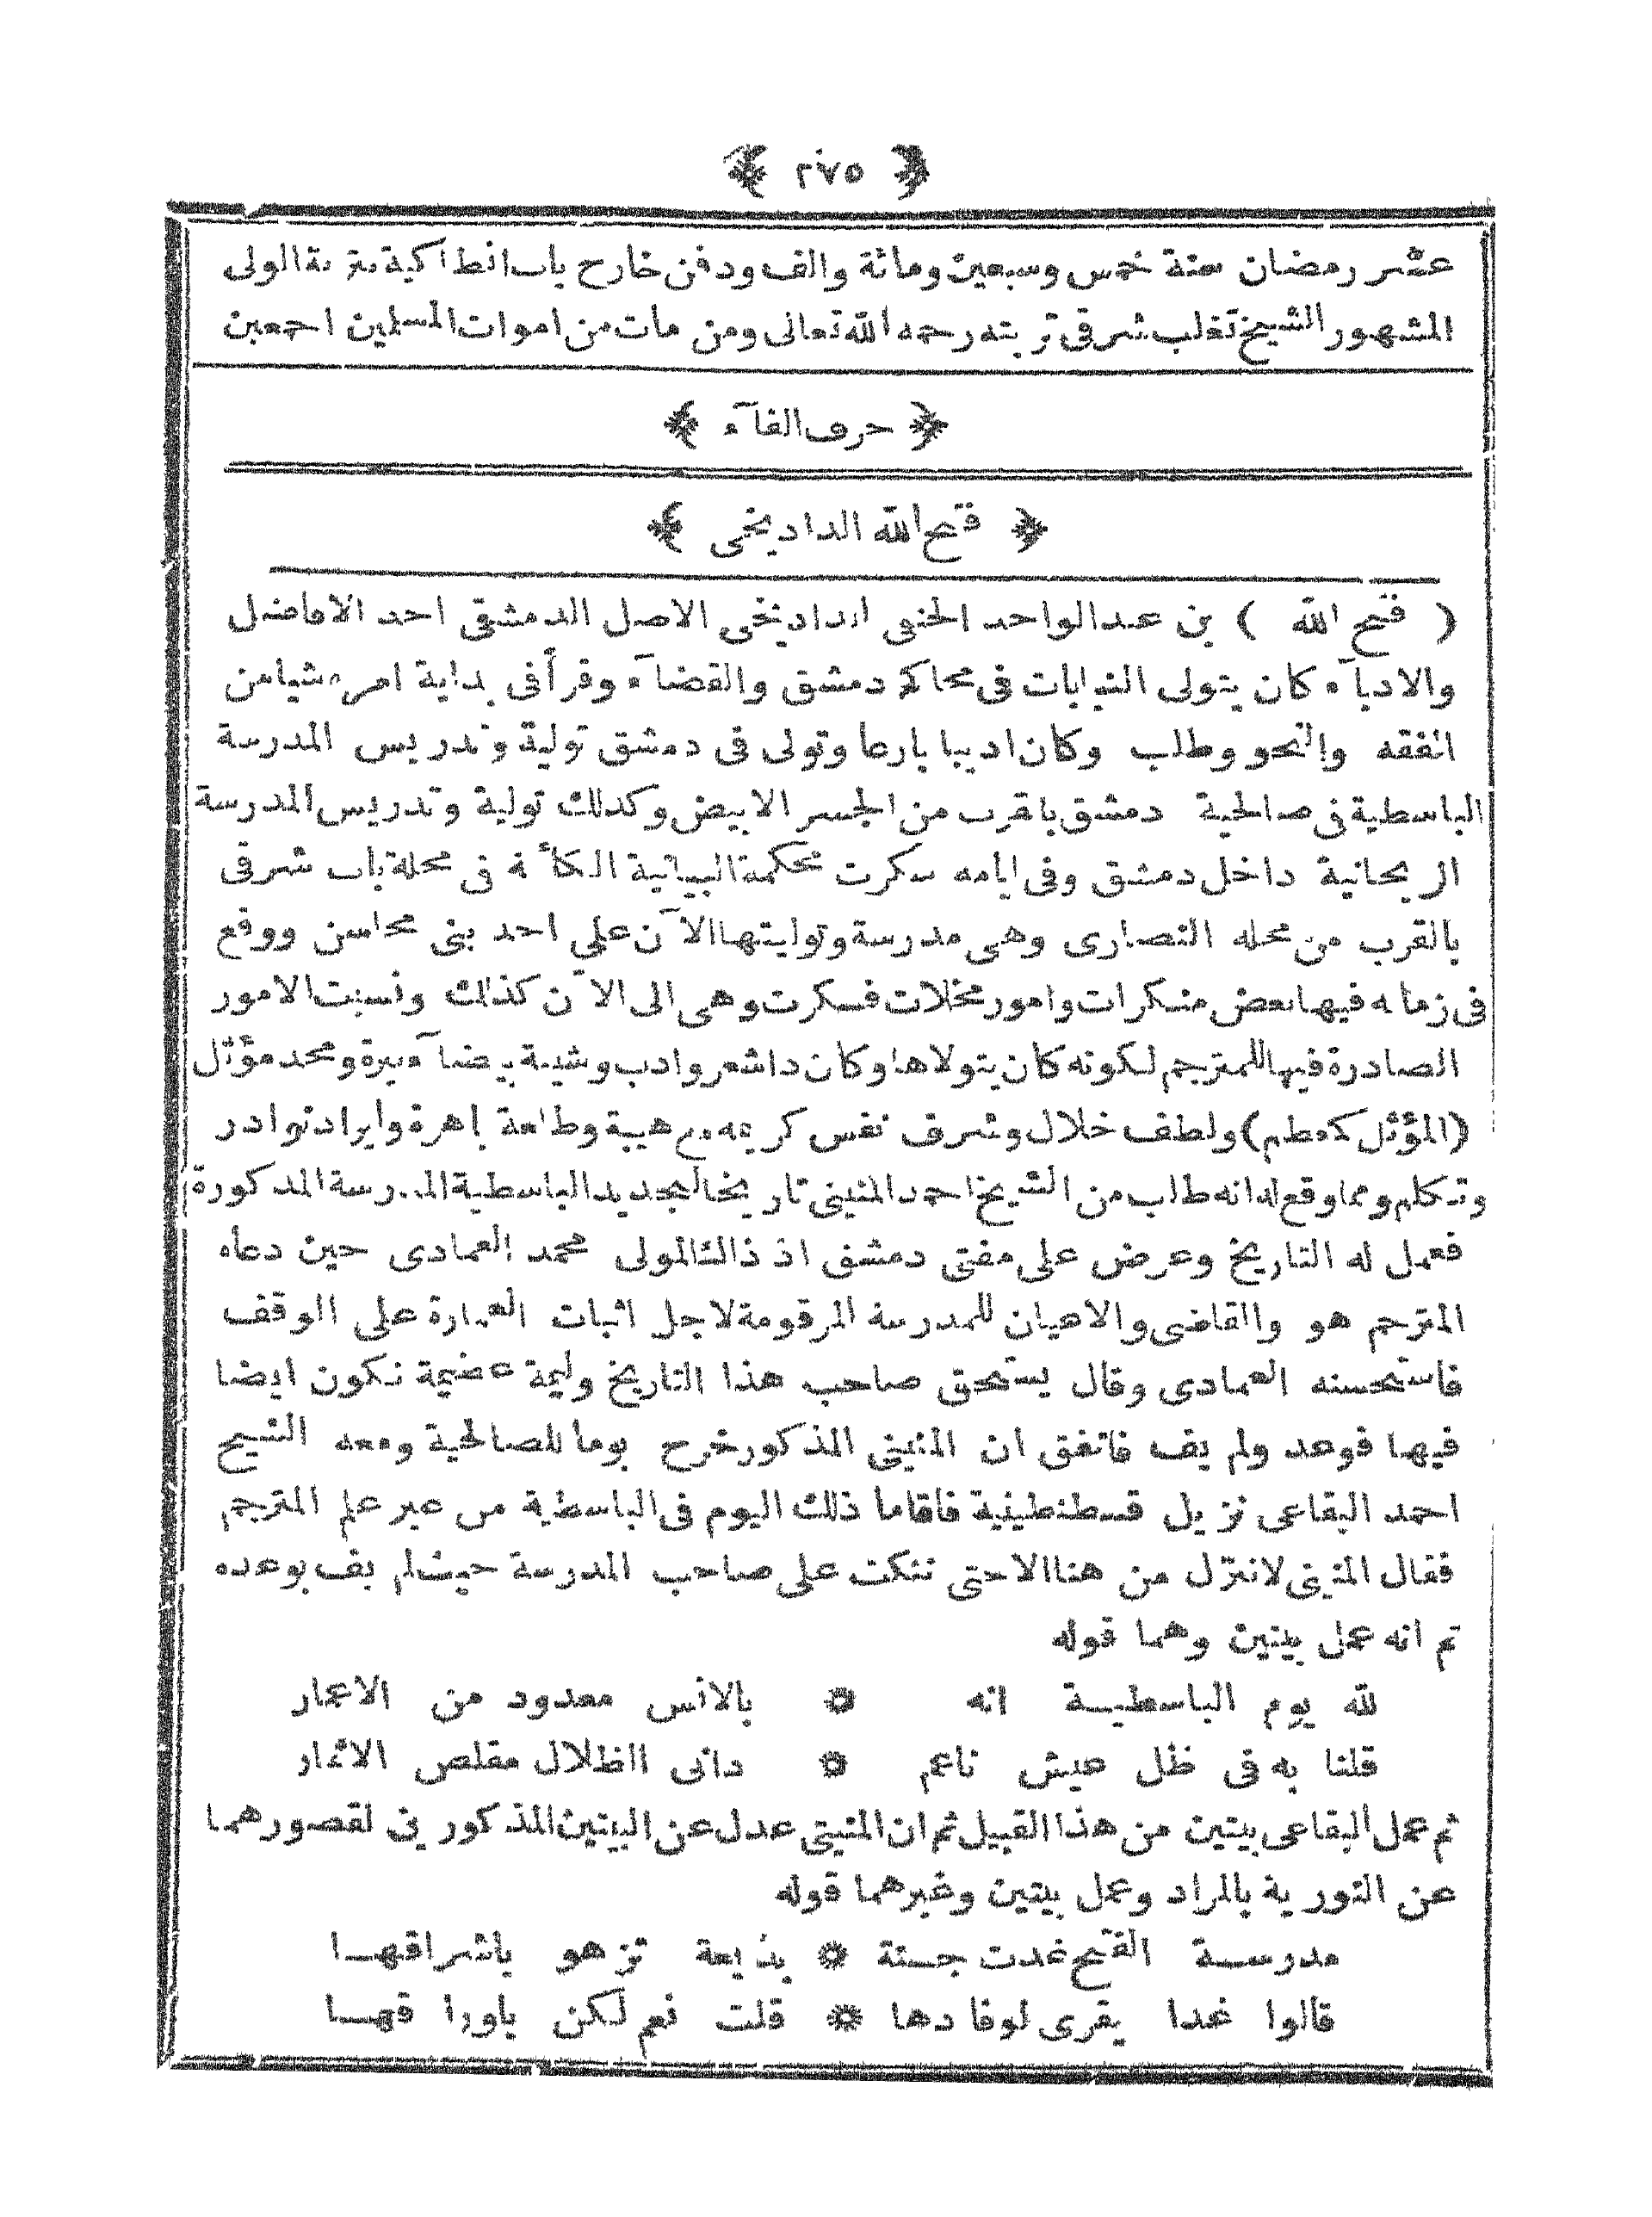 ﴿ ٢٧٥ ﴾
عشر رمضان سنة خمس وسبعين ومائة والف ودفن خارج باب انطاكية بتربة الولى
المشهور الشيخ تغلب شرقى تربته رحمه الله تعالى ومن مات من اموات المسلمين اجمعين
﴿ حرف الفآء ﴾
﴿ فتح الله الداديخى ﴾
( فتح الله ) بن عبد الواحد الحنفى الداديخى الاصل الدمشقى احد الافاضل
والادبآء كان يتولى النيابات فى محاكم دمشق والقضآء وقرأ فى بداية امره شيا من
الفقه والنحو وطلب وكان اديبا بارعا وتولى فى دمشق تولية وتدريس المدرسة
الباسطية فى صالحية دمشق بالقرب من الجسر الابيض وكذلك تولية وتدريس المدرسة
الريحانية داخل دمشق وفى ايامه سكرت محكمة البيانية الكائنة فى محلة باب شرقى
بالقرب من محله النصارى وهى مدرسة وتوليتها الآن على احد بنى محاسن ووقع
فى زمانه فيها بعض منكرات وامور مخلات فسكرت وهى الى الآن كذلك ونسبت الامور
الصادرة فيها للمترجم لكونه كان يتولاها وكان ذا شعر وادب وشيبة بيضآء نيرة ومجد مؤثل
(المؤثل كمعظم) ولطف خلال وشرف نفس كريمه مع هيبة وطلعة باهرة وايراد نوادر
وتكلم ومما وقع له انه طلب من الشيخ احمد المنينى تاريخا لتجديد الباسطية المدرسة المذكورة
فعمل له التاريخ وعرض على مفتى دمشق اذ ذاك المولى محمد العمادى حين دعاه
المترجم هو والقاضى والاعيان للمدرسة المرقومة لاجل اثبات العمارة على الوقف
فاستحسنه العمادى وقال يستحق صاحب هذا التاريخ وليمة عضيمة تكون ايضا
فيها فوعد ولم يف فاتفق ان المنينى المذكور خرج يوما للصالحية ومعه الشيخ
احمد البقاعى نزيل قسطنطينية فاقاما ذلك اليوم فى الباسطية من غير علم المترجم
فقال المنينى لا ننزل من هنا الا حتى ننكت على صاحب المدرسة حيث لم يف بوعده
ثم انه عمل بيتين وهما قوله
لله يوم الباسطيـة انه ۞ بالانس معدود من الاعمار
قلنا به فى ظل عيش ناعم ۞ دانى الظلال مقلص الاثمار
ثم عمل البقاعى بيتين من هذا القبيل ثم ان المنينى عدل عن البيتين المذكورين لقصورهما
عن التورية بالمراد وعمل بيتين وغيرهما قوله
مدرسـة الفتح غدت جـنة ۞ بديعة تزهو باشراقهـا
قالوا غدا يقرى لوفادها ۞ قلت نعم لكن باوراقهـا